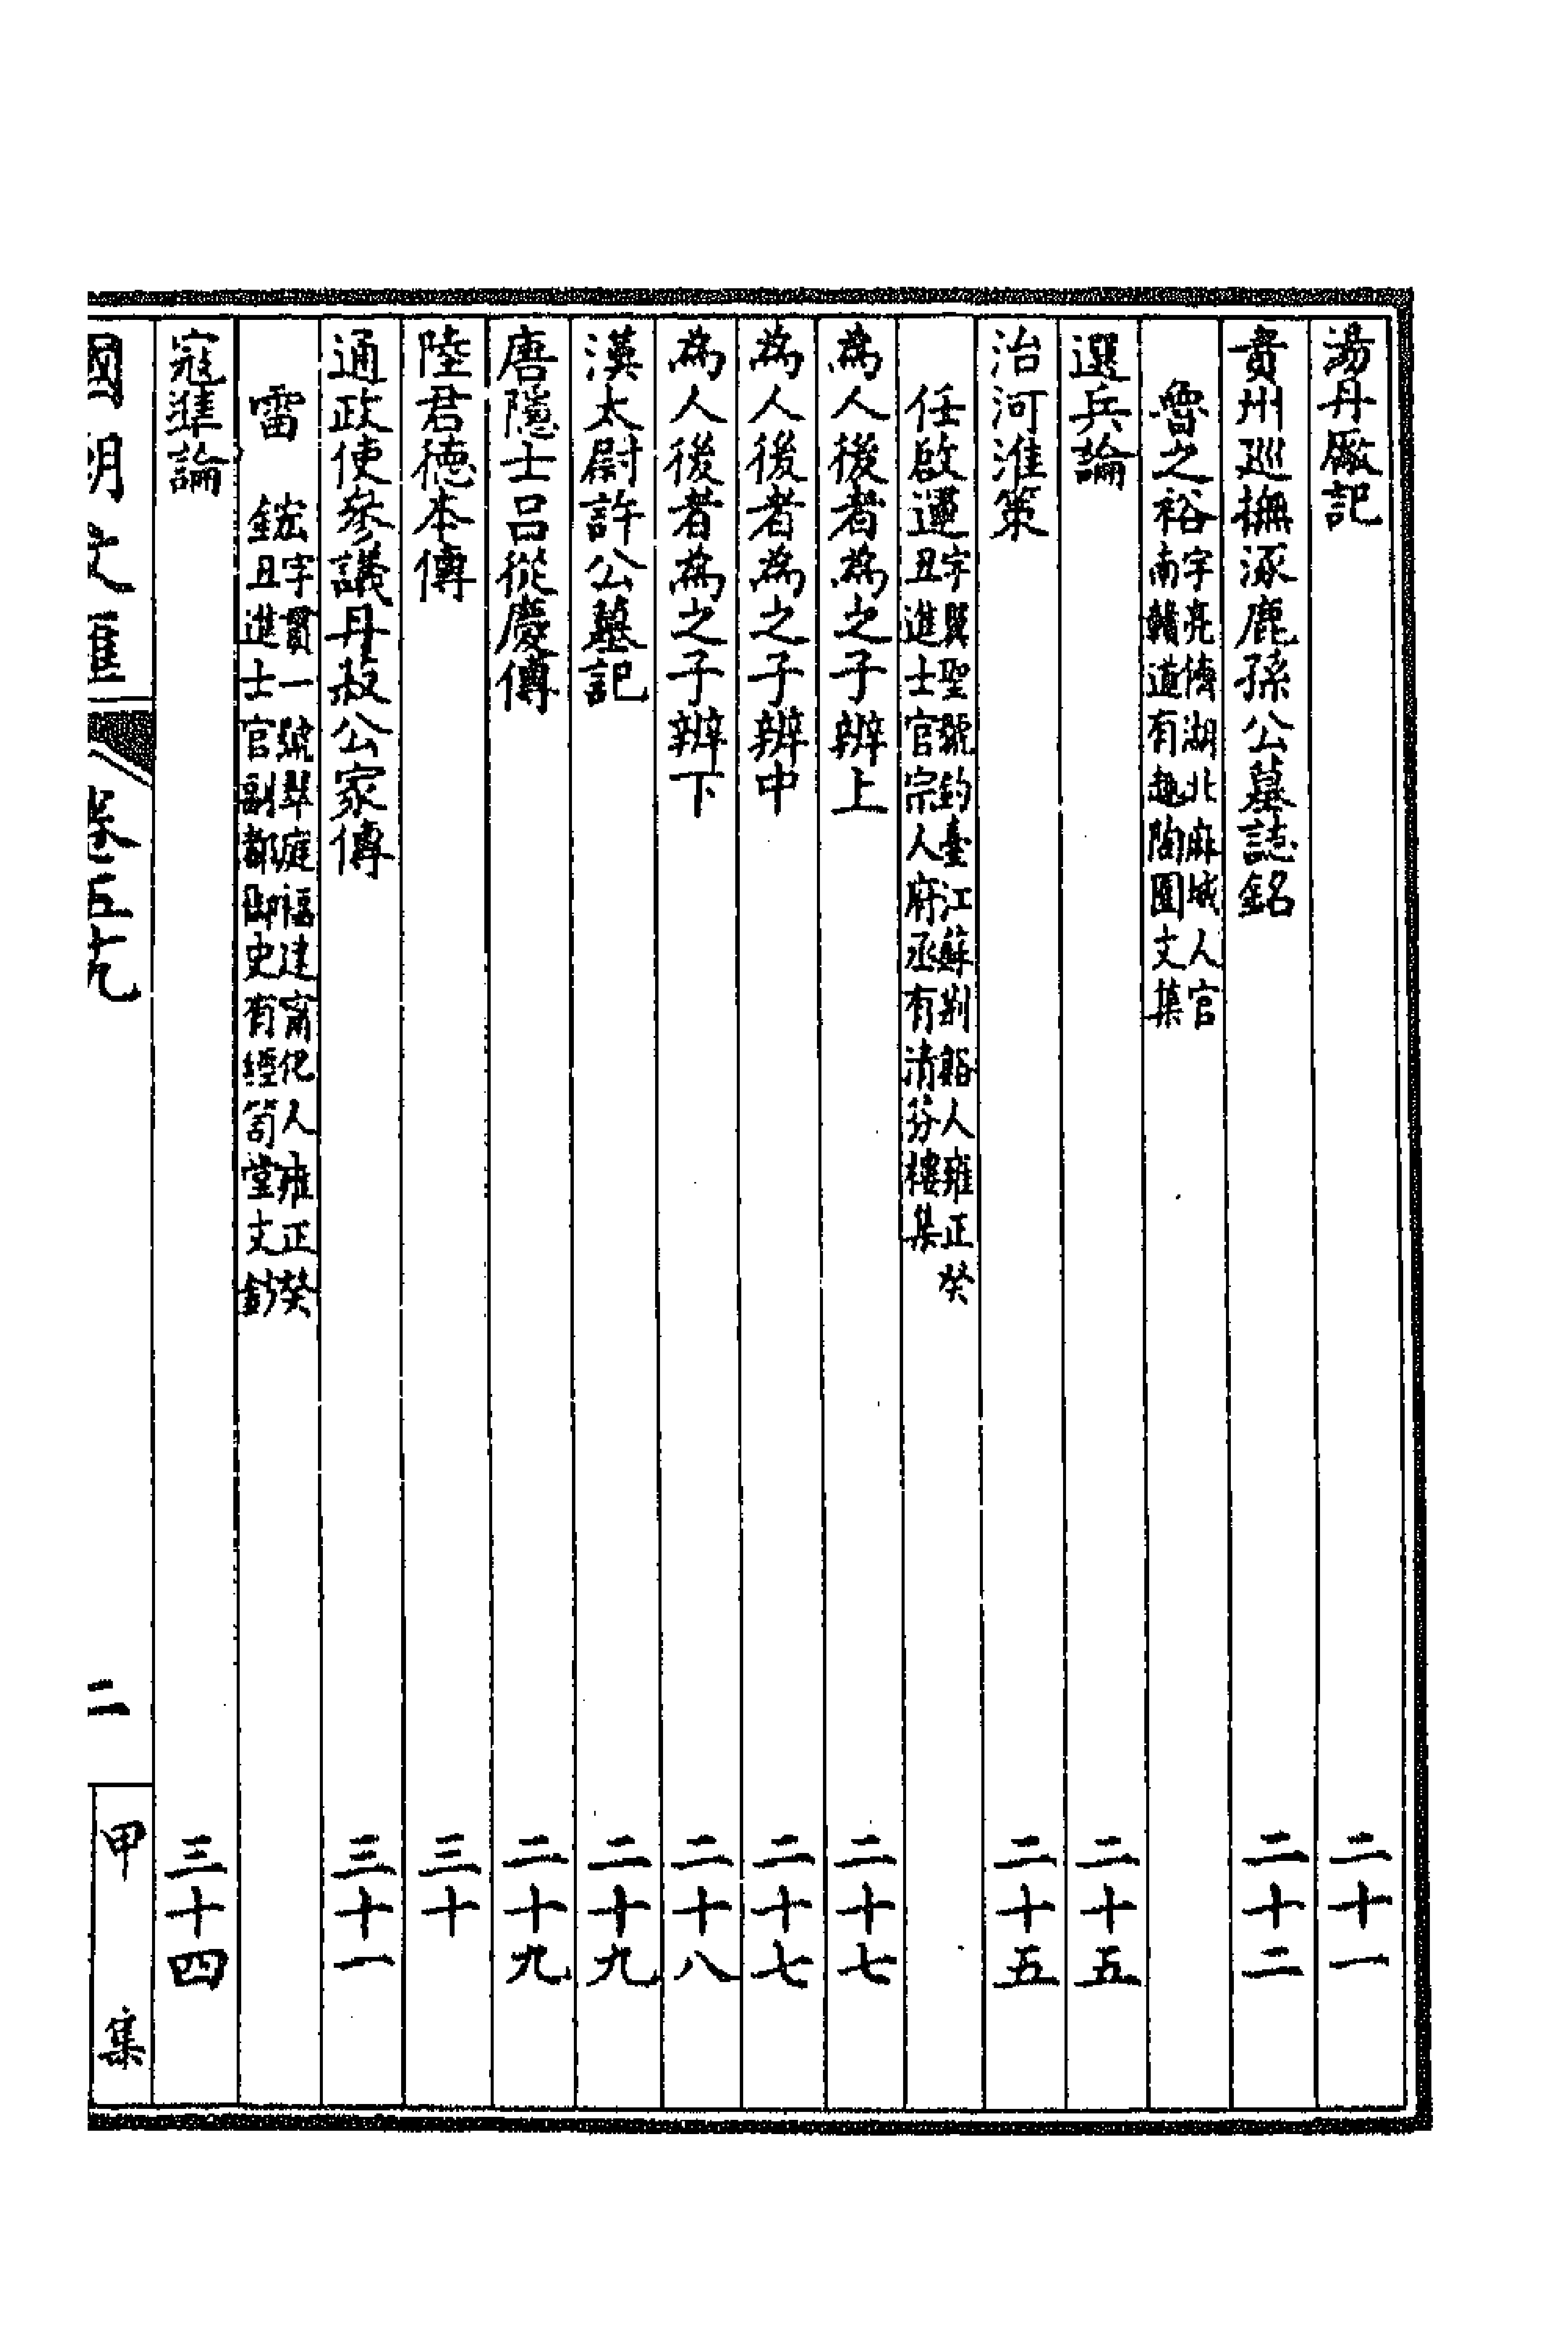 湯丹廠記 二十一
貴州巡撫涿鹿孫公墓誌銘 二十二
魯之裕字亮儕湖北麻城人官
南贛道有趣陶園文集
選兵論 二十五
治河淮策 二十五
任啟運字翼聖號釣臺江蘇荆谿人雍正癸
丑進士官宗人府丞有清芬樓集
為人後者為之子辨上 二十七
為人後者為之子辨中 二十七
為人後者為之子辨下 二十八
漢太尉許公墓記 二十九
唐隱士呂從慶傳 二十九
陸君德本傳 三十
通政使參議丹叔公家傳 三十一
雷鋐字貫一號翠庭福建甯化人雍正癸
丑進士官副都御史有經笥堂文鈔
寇準論 三十四
國朝文匯 卷五十九 二 甲集